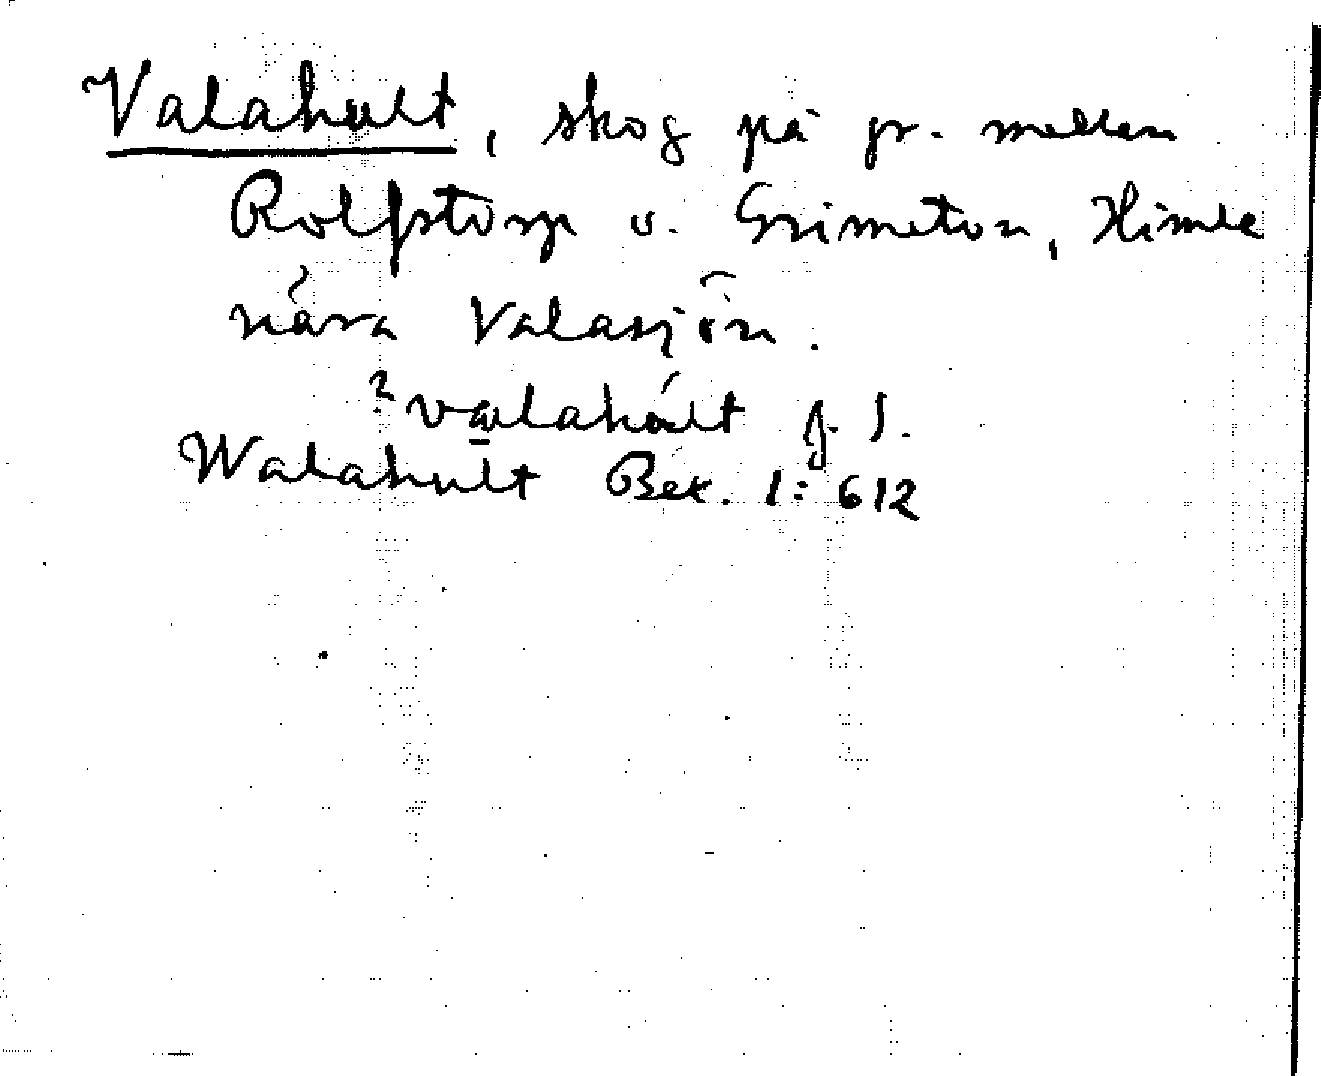 Valahult, skog på gr. mellan
Rolfstorp o. Grimeton, Himle
nära Valasjön.
? valahult f. 1.
Walahult Bex. 1: 612